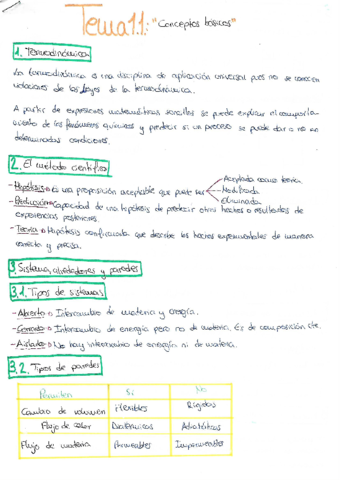 Tema 1.1: "Conceptos básicos"
1. Termodinámica
La termodinámica es una disciplina de aplicación universal pues no se conocen
violaciones de las leyes de la termodinámica.
A partir de expresiones matemáticas sencillas se puede explicar el comporta-
miento de los fenómenos químicos y predecir si un proceso se puede dar o no en
determinadas condiciones.
2. El método científico
- Hipótesis → Es una proposición aceptable que puede ser
Aceptada como teoría
Modificada
Eliminada
- Deducción → Capacidad de una hipótesis de predecir otros hechos o resultados de
experiencias posteriores.
- Teoría → Hipótesis confirmada que describe los hechos experimentales de manera
correcta y precisa.
3. Sistema, alrededores y paredes
3.1. Tipos de sistemas
- Abierto → Intercambio de materia y energía.
- Cerrado → Intercambio de energía pero no de materia. Es de composición cte.
- Aislado → No hay intercambio de energía ni de materia.
3.2. Tipos de paredes
Permiten Sí No
Cambio de volumen Flexibles Rígidas
Flujo de calor Diatérmicas Adiabáticas
Flujo de materia Permeables Impermeables